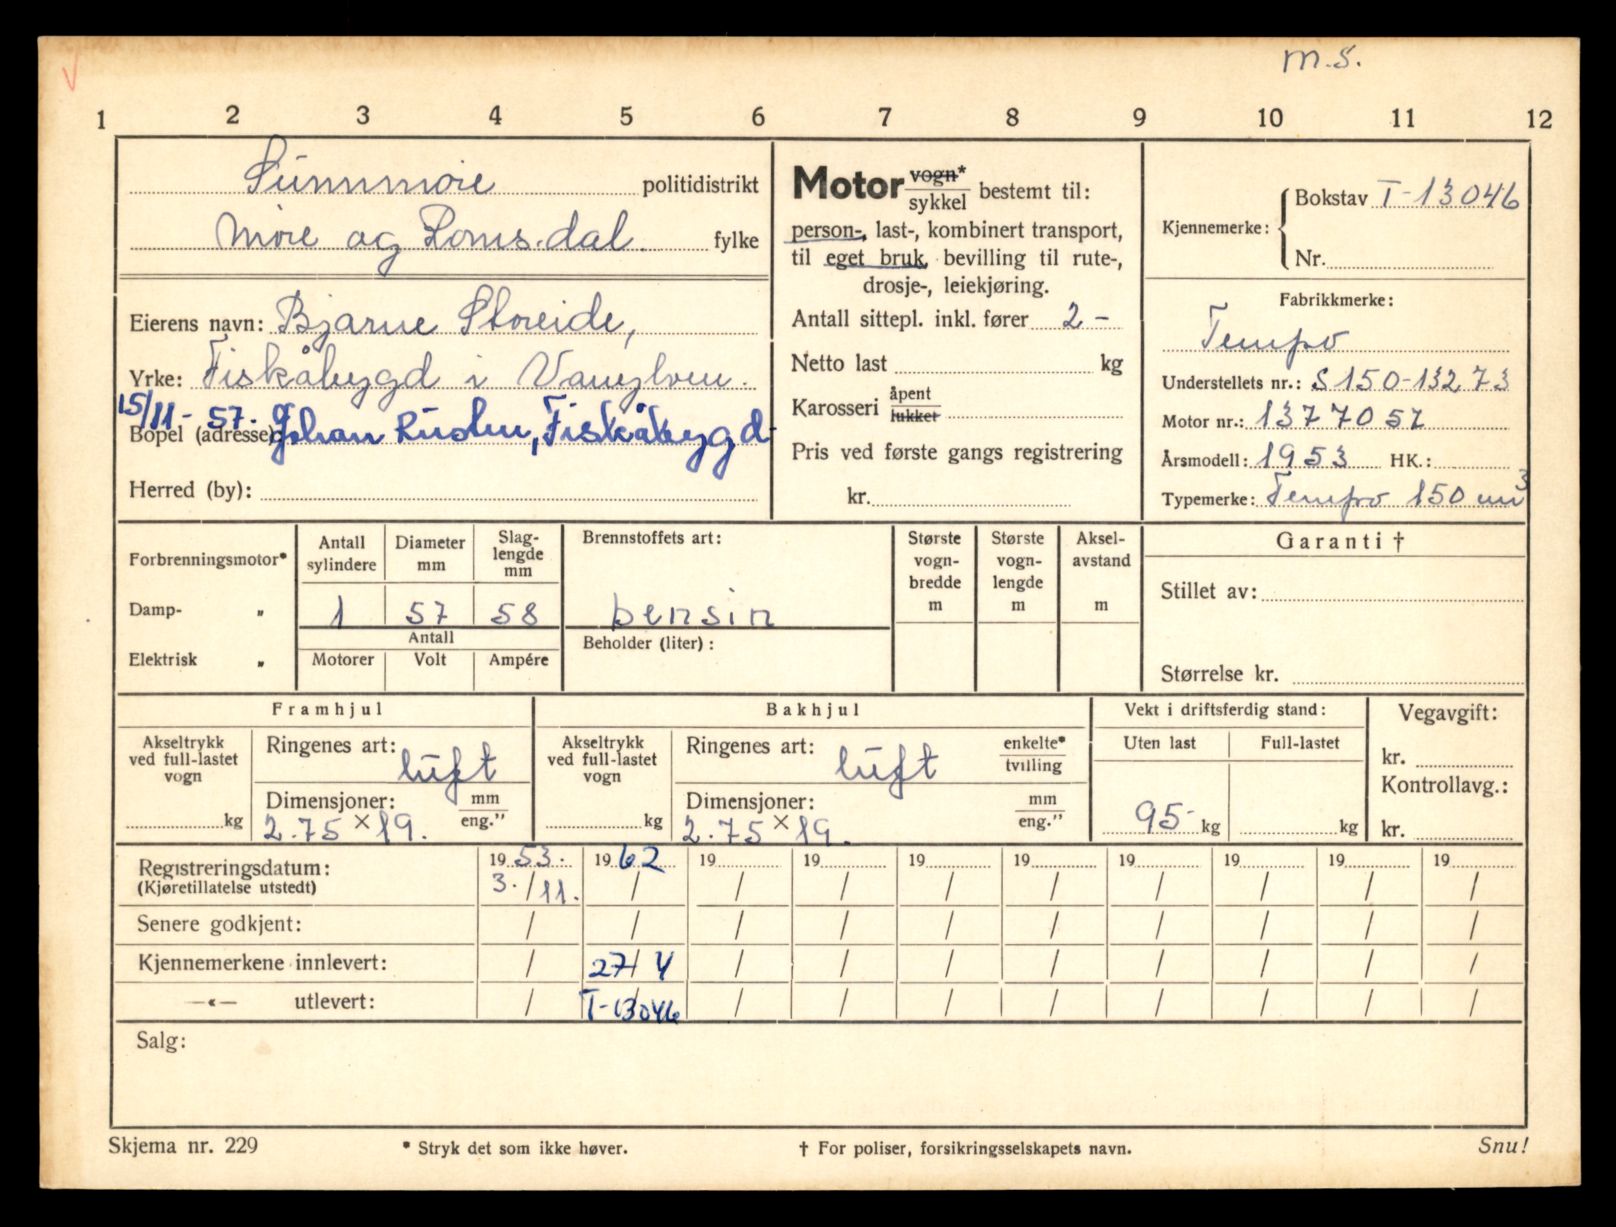 m.s.
1 2 3 4 5 6 7 8 9 10 11 12
Sunnmøre politidistrikt
Møre og Romsdal. fylke
Eierens navn: Bjarne Storeide,
Yrke: Fiskåbygd i Vanylven.
15/11-57.
Bopel (adresse): Johan Rusten, Fiskåbygd
Herred (by):
Motor vogn*/sykkel bestemt til:
person-, last-, kombinert transport,
til eget bruk, bevilling til rute-,
drosje-, leiekjøring.
Antall sittepl. inkl. fører 2-
Netto last kg
Karosseri åpent/lukket
Pris ved første gangs registrering
kr.
Kjennemerke: Bokstav T-13046
Nr.
Fabrikkmerke:
Tempo
Understellets nr.: S150-13273
Motor nr.: 1377057
Årsmodell: 1953 HK.:
Typemerke: Tempo 150 cm3
Forbrenningsmotor*
Damp- „
Elektrisk „
Antall sylindere Diameter mm Slaglengde mm
1 57 58
Antall
Motorer Volt Ampére
Brennstoffets art:
bensin
Beholder (liter):
Største vognbredde m
Største vognlengde m
Akselavstand m
Garanti †
Stillet av:
Størrelse kr.
Framhjul
Akseltrykk ved full-lastet vogn
kg
Ringenes art: luft
Dimensjoner: mm/eng."
2.75 × 19.
Bakhjul
Akseltrykk ved full-lastet vogn
kg
Ringenes art: luft enkelte*/tvilling
Dimensjoner: mm/eng."
2.75 × 19.
Vekt i driftsferdig stand:
Uten last Full-lastet
95- kg kg
Vegavgift:
kr.
Kontrollavg.:
kr.
Registreringsdatum: 1953. 1962 19 19 19 19 19 19 19 19
(Kjøretillatelse utstedt) 3./11. / / / / / / / / /
Senere godkjent: / / / / / / / / / /
Kjennemerkene innlevert: / 27/4 / / / / / / / /
—«— utlevert: / T-13046 / / / / / / / /
Salg:
Skjema nr. 229 * Stryk det som ikke høver. † For poliser, forsikringsselskapets navn. Snu!